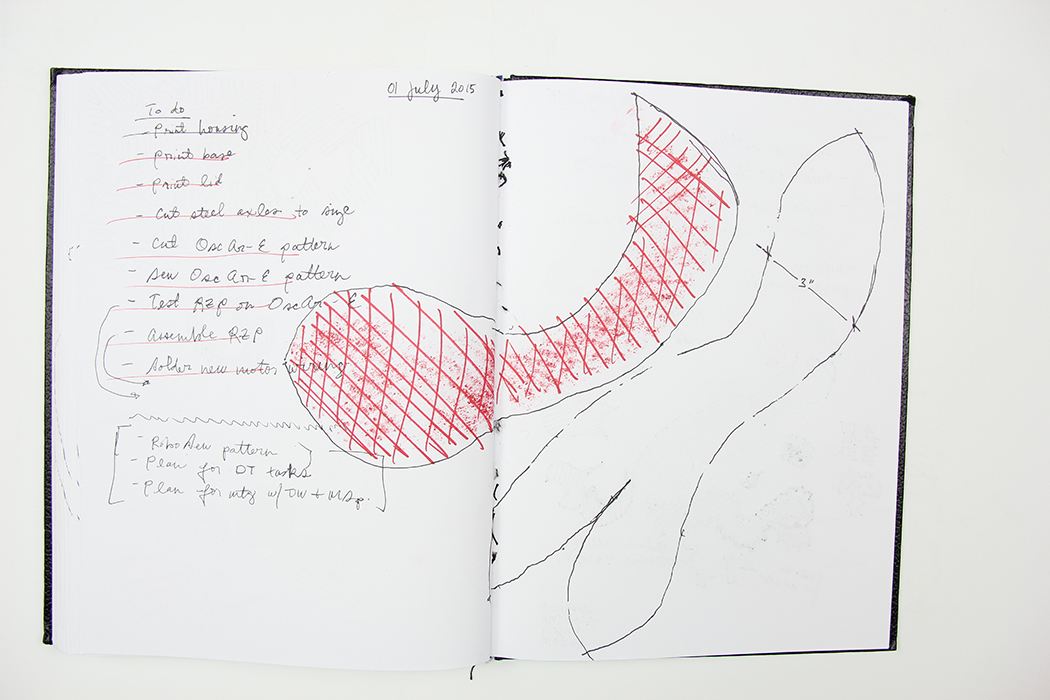 01 July 2015
To do
- print housing
- print base
- print lid
- Cut steel axles to size
- Cut OscAr-E pattern
- sew OscAr-E pattern
- Test RZP on OscAr-E
- assemble RZP
- Solder new motor wiring
- pattern
- Plan for DT tasks
- Plan for mtg w/ DW +
3"